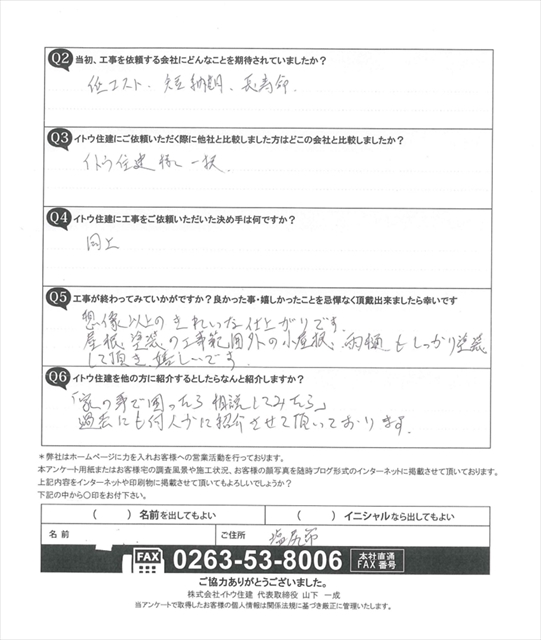 Q2 当初、工事を依頼する会社にどんなことを期待されていましたか？
低コスト、短納期、長寿命
Q3 イトウ住建にご依頼いただく際に他社と比較しました方はどこの会社と比較しましたか？
イトウ住建様に一択
Q4 イトウ住建に工事をご依頼いただいた決め手は何ですか？
同上
Q5 工事が終わってみていかがですか？良かった事・嬉しかったことを忌憚なく頂戴出来ましたら幸いです
想像以上のきれいな仕上がりです。
屋根、塗装の工事範囲外の小屋根、雨樋もしっかり塗装
して頂き、嬉しいです。
Q6 イトウ住建を他の方に紹介するとしたらなんと紹介しますか？
「家の事で困ったら相談してみたら」
過去にも何人かに紹介させて頂いております。
＊弊社はホームページに力を入れお客様への営業活動を行っております。
本アンケート用紙またはお客様宅の調査風景や施工状況、お客様の顔写真を随時ブログ形式のインターネットに掲載させて頂いております。
上記内容をインターネットや印刷物に掲載させて頂いてもよろしいでしょうか？
下記の中から〇印をお付下さい。
（　　）名前を出してもよい （　　）イニシャルなら出してもよい
名前 ご住所 塩尻市
FAX 0263-53-8006 本社直通 FAX番号
ご協力ありがとうございました。
株式会社イトウ住建 代表取締役 山下 一成
当アンケートで取得したお客様の個人情報は関係法規に基づき厳正に管理いたします。